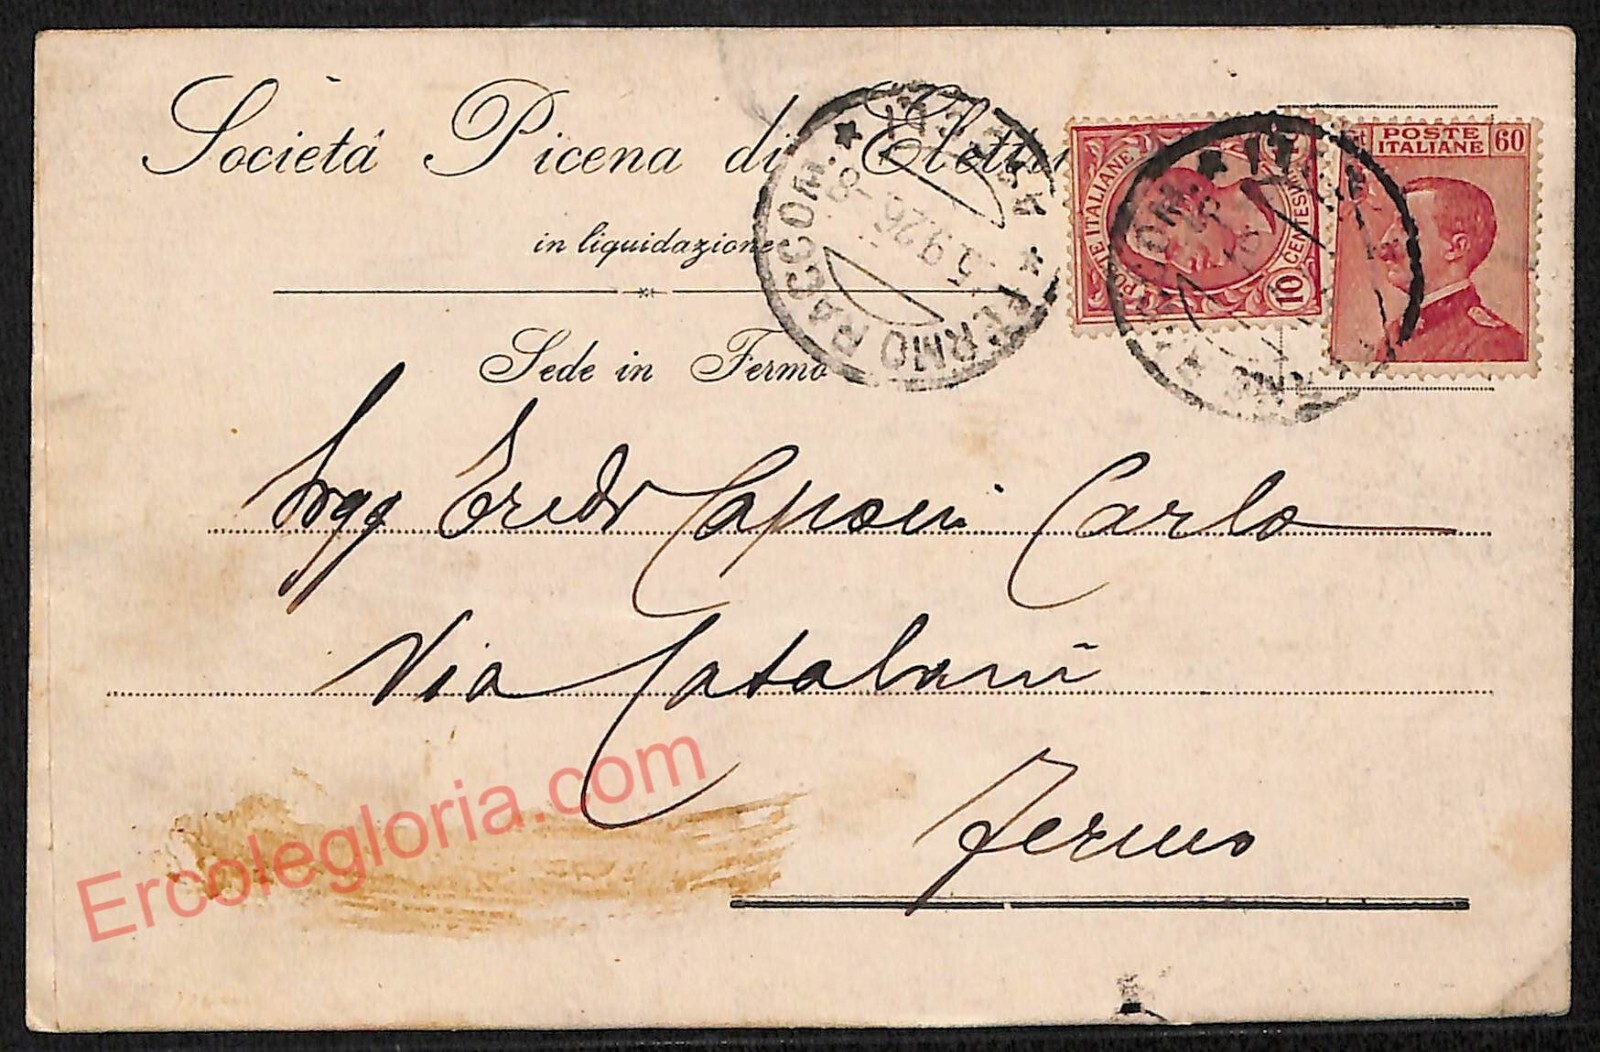 Società Picena di
in liquidazione
Sede in Fermo
FERMO RACCOM. * (ASCOLI
5.9.26-8
POSTE ITALIANE
10 CENTESIMI 10
POSTE 60
ITALIANE
Eredi Caponi Carlo
Via Catalani
Fermo
Ercolegloria.com